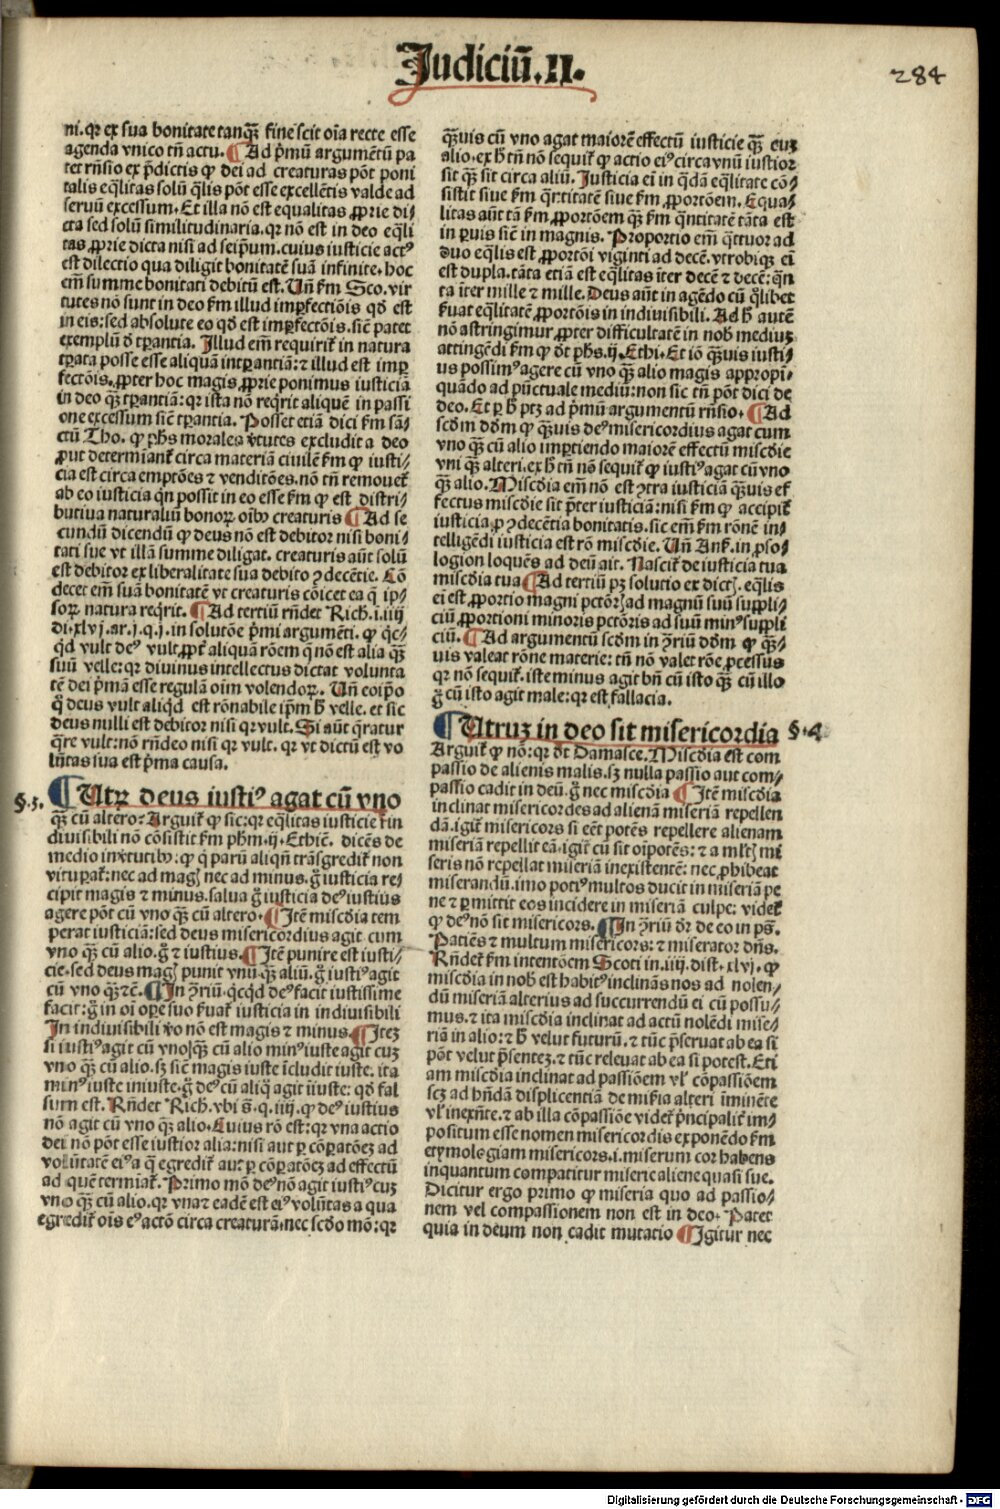 Judiciū.II.
284
ni. qꝛ ex sua bonitate tanqȝ̄ fine scit oīa recte esse
agenda vnico tn̄ actu. ¶ Ad p̄mū argumētū pa
tet rn̄sio ex p̄dictis ꝙ dei ad creaturas pōt poni
talis eq̄litas solū q̄lis pōt esse excellētis valde ad
seruū excessum. Et illa nō est equalitas ꝓprie di⸗
cta sed solū similitudinaria. qꝛ nō est in deo eq̄li
tas ꝓprie dicta nisi ad seip̄um. cuius iusticie actꝰ
est dilectio qua diligit bonitatē suā infinite. hoc
em̄ summe bonitati debitū est. Un̄ ẜm Sco. vir
tutes nō sunt in deo ẜm illud imꝑfectiōis qd̄ est
in eis: sed absolute eo qd̄ est imꝑfectōis. sic̄ patet
exemplū d̄ tꝑantia. Illud em̄ requirit̃ in natura
tꝑata posse esse aliquā intꝑantiā: ⁊ illud est imꝑ
fectōis. ꝓpter hoc magis ꝓprie ponimus iusticiā
in deo qȝ̄ tꝑantiā: qꝛ ista nō req̄rit aliquē in passi
one excessum sic̄ tꝑantia. Posset etiā dici ẜm sā⸗
ctū Tho. ꝙ ph̄s morales v̓tutes excludit a deo
ꝓut determinant̃ circa materiā ciuilē ẜm ꝙ iusti⸗
cia est circa emptōes ⁊ venditōes. nō tn̄ remouet̃
ab eo iusticia qn̄ possit in eo esse ẜm ꝙ est distri⸗
butiua naturaliū bonoꝝ oībꝰ creaturis ¶ Ad se
cundū dicendū ꝙ deus nō est debitor nisi boni⸗
tati sue vt illā summe diligat. creaturis aūt solū
est debitor ex liberalitate sua debito ꝯdecētie. Cō
decet em̄ suā bonitatē vt creaturis cōicet ea q̄ ip⸗
soꝝ natura req̄rit. ¶ Ad tertiū rn̄det Rich. i. iiij
di. xlvj. ar. j. q. j. in solutōe p̄mi argumēti. ꝙ qͥc⸗
qͥd vult deꝰ vult ꝓpt̓ aliquā rōem q̄ nō est alia qȝ̄
suū velle: qꝛ diuinus intellectus dictat volunta
tē dei p̄mā esse regulā oīm volendoꝝ. Un̄ eoip̄o
ꝙ deus vult aliqͥd est rōnabile ip̄m h̄ velle. et sic
deus nulli est debitor nisi qꝛ vult. Si aūt q̄ratur
q̄re vult: nō rn̄deo nisi qꝛ vult. qꝛ vt dictū est vo
lūtas sua est p̄ma causa.
§.3. ¶ Utꝝ deus iustiꝰ agat cū vno
qȝ̄ cū altero: Arguit̃ ꝙ sic: qꝛ eq̄litas iusticie ẜ in
diuisibili nō cōsistit ẜm phm̄. ij. Ethic̄. dicēs de
medio invtutibꝰ: ꝙ q̄ parū aliqn̄ trāsgredit̃ non
vituꝑat̃: nec ad magꝭ nec ad minus. g̊ iusticia re⸗
cipit magis ⁊ minus. salua g̊ iusticia deꝰ iustius
agere pōt cū vno qȝ̄ cū altero. ¶ Itē misc̄dia tem
perat iusticiā: sed deus misericordius agit cum
vno qȝ̄ cū alio. g̊ ⁊ iustius. ¶ Itē punire est iusti⸗
cie. sed deus magꝭ punit vnū qȝ̄ aliū. g̊ iustiꝰ agit
cū vno qȝ̄ ⁊c̄. ¶ In ꝯriū. qͥcqͥd deꝰ facit iustissime
facit: g̊ in oī oꝑe suo ẜuat̃ iusticia in indiuisibili
In indiuisibili v̓o nō est magis ⁊ minus. ¶ Iteȝ
si iustiꝰ agit cū vno qȝ̄ cū alio minꝰ iuste agit cuȝ
vno qȝ̄ cū alio. sȝ sic̄ magis iuste īcludit iuste. ita
minꝰ iuste iniuste. g̊ deꝰ cū aliqͦ agit īiuste: qd̄ fal
sum est. Rn̄det Rich. vbi s̄. q. iiij. ꝙ deꝰ iustius
nō agit cū vno qȝ̄ alio. Cuius rō est: qꝛ vna actio
dei nō pōt esse iustior alia: nisi aut ꝑ cōꝑatōeȝ ad
volūtatē eiꝰ a q̄ egredit̃ aut ꝑ cōꝑatōeȝ ad effectū
ad quē termīat̃. Primo mō deꝰ nō agit iustiꝰ cuȝ
vno qȝ̄ cū alio. qꝛ vna ⁊ eadē est eiꝰ volūtas a qua
egredit̃ oīs eꝰ actō circa creaturā. nec sc̄do mō: qꝛ
qȝ̄uis cū vno agat maiorē effectū iusticie qȝ̄ cuȝ
alio. ex h̄ tn̄ nō sequit̃ ꝙ actio eiꝰ circa vnū iustior
sit qȝ̄ sit circa aliū. Justicia ei̅ in q̄dā eq̄litate cō⸗
sistit siue ẜm qn̄titatē siue ẜm ꝓportōem. Equa⸗
litas aūt tā ẜm ꝓportōem qȝ̄ ẜm qn̄titatē tāta est
in ꝑuis sic̄ in magnis. Proportio em̄ qͣttuor ad
duo eq̄lis est ꝓportōi viginti ad decē. vtrobiqȝ ei̅
est dupla. tāta etiā est eq̄litas īter decē ⁊ decē: qn̄
ta īter mille ⁊ mille. Deus aūt in agēdo cū qͦlibet
ẜuat eq̄litatē ꝓportōis in indiuisibili. Ad h̄ autē
nō astringimur ꝓpter difficultatē in nob̄ mediuȝ
attingēdi ẜm ꝙ dt̄ ph̄s. ij. Ethi. Et iō qȝ̄uis iusti⸗
us possimꝰ agere cū vno qȝ̄ alio magis appropi⸗
quādo ad pūctuale mediū: non sic tn̄ pōt dici de
deo. Et ꝑ h̄ ptȝ ad p̄mū argumentū rn̄sio. ¶ Ad
scd̄m dd̄m ꝙ quāuis deꝰ misericordius agat cum
vno qȝ̄ cū alio impartiendo maiorē effectū misc̄die
vni qȝ̄ alteri. ex h̄ tn̄ nō sequit̃ ꝙ iustiꝰ agat cū vno
qȝ̄ alio. Misc̄dia em̄ nō est ꝯtra iusticiā qȝ̄uis ef
fectus misc̄die sit p̄ter iusticiā: nisi ẜm ꝙ accipit̃
iusticia ꝓ ꝯdecētia bonitatis. sic em̄ ẜm rōnē in⸗
telligēdi iusticia est rō misc̄die. Un̄ Anẜ. in ꝓso⸗
logion loquēs ad deū ait. Nascit̃ de iusticia tua
misc̄dia tua ¶ Ad tertiū pȝ solutio ex dictꝭ. eq̄lis
ei̅ est ꝓportio magni pctōrꝭ ad magnū suū suppli⸗
ciū ꝓportioni minoris pctōris ad suū minꝰ suppli
ciū. ¶ Ad argumentū scd̄m in ꝯriū dd̄m ꝙ qȝ̄⸗
uis valeat rōne materie: tn̄ nō valet rōe ꝓcessus
qꝛ nō sequit̃. iste minus agit bn̄ cū isto qȝ̄ cū illo
g̊ cū isto agit male: qꝛ est fallacia.
¶ Utruȝ in deo sit misericordia §.4
Arguit̃ ꝙ nō: qꝛ dt̄ Damasce. Misc̄dia est com
passio de alienis malis. sȝ nulla passio aut com⸗
passio cadit in deū. g̊ nec misc̄dia ¶ Itē misc̄dia
inclinat misericordes ad alienā miseriā repellen
dā. igit̃ misericors si eēt potēs repellere alienam
miseriā repellit eā. igit̃ cū sit oīpotēs: ⁊ a mlt̄ꝭ mi
seris nō repellat miseriā inexistentē: nec ꝓhibeat
miserandū. imo potiꝰ multos ducit in miseriā pe
ne ⁊ ꝑmittit eos incidere in miseriā culpe: videt̃
ꝙ deꝰ nō sit misericors. ¶ In ꝯriū dr̄ de eo in ps̄.
Patiēs ⁊ multum misericors: ⁊ miserator dn̄s.
Rn̄det̃ ẜm intentōem Scoti in. iiij. dist. xlvj. ꝙ
misc̄dia in nob̄ est habitꝰ inclināns nos ad nolen⸗
dū miseriā alterius ad succurrendū ei cū possu⸗
mus. ⁊ ita misc̄dia inclinat ad actū nolēdi mise⸗
riā in alio: ⁊ h̄ velut futurū. ⁊ tūc p̄seruat ab ea si
pōt velut p̄sentez. ⁊ tūc releuat ab ea si potest. Eti
am misc̄dia inclinat ad passiōem vl̓ cōpassiōem
scȝ ad hn̄dā displicentiā de miẜia alteri īminēte
vl̓ inexn̄te. ⁊ ab illa cōpassiōe videt̃ p̄ncipalit̓ im⸗
positum esse nomen misericordis exponēdo ẜm
etymolegiam misericors. i. miserum cor habens
inquantum compatitur miserie aliene quasi sue.
Dicitur ergo primo ꝙ miseria quo ad passio⸗
nem vel compassionem non est in deo. Patet
quia in deum non cadit mutatio ¶ Igitur nec
Digitalisierung gefördert durch die Deutsche Forschungsgemeinschaft - DFG